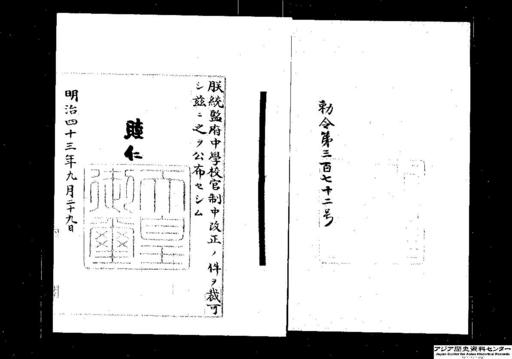 勅令第三百七十二号
朕統監府中學校官制中改正ノ件ヲ裁可
シ茲ニ之ヲ公布セシム
睦仁
天皇
御璽
明治四十三年九月二十九日
アジア歴史資料センター
Japan Center for Asian Historical Records